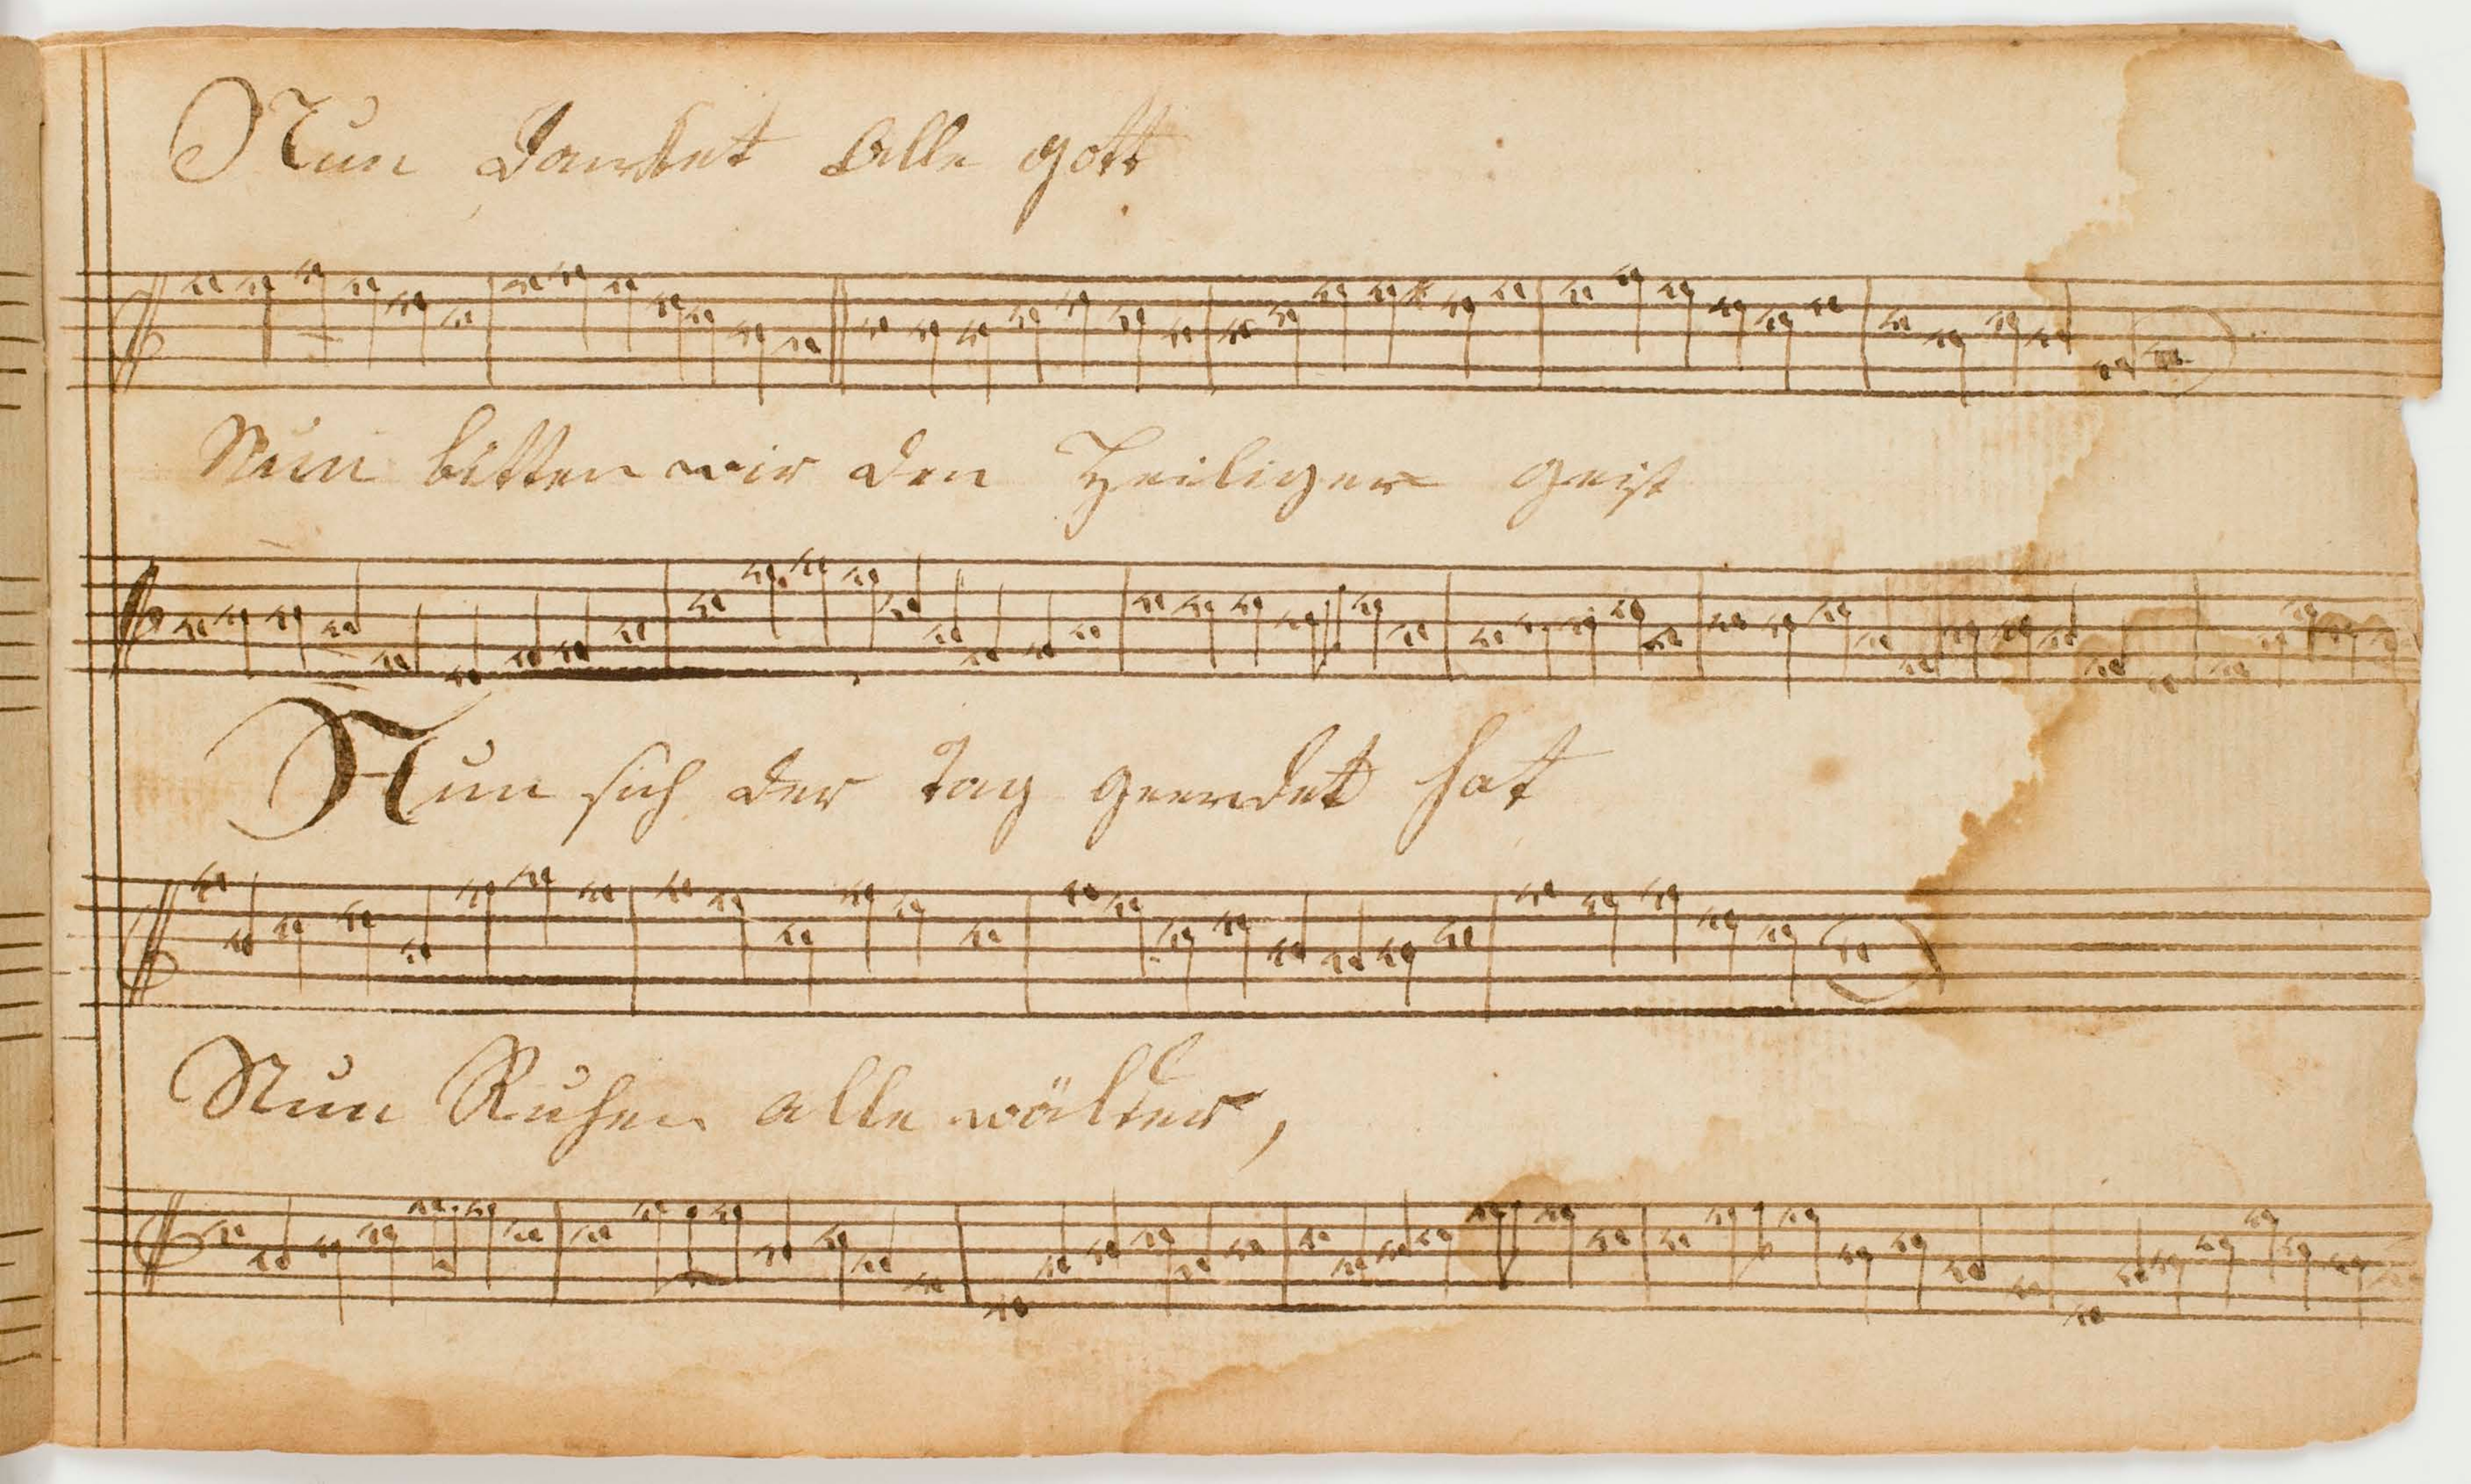 Nun Danket Alle gott
Nun bitten wir den Heiligen geist
Nun sich der Tag geendet hat
Nun Ruhen alle wälder,